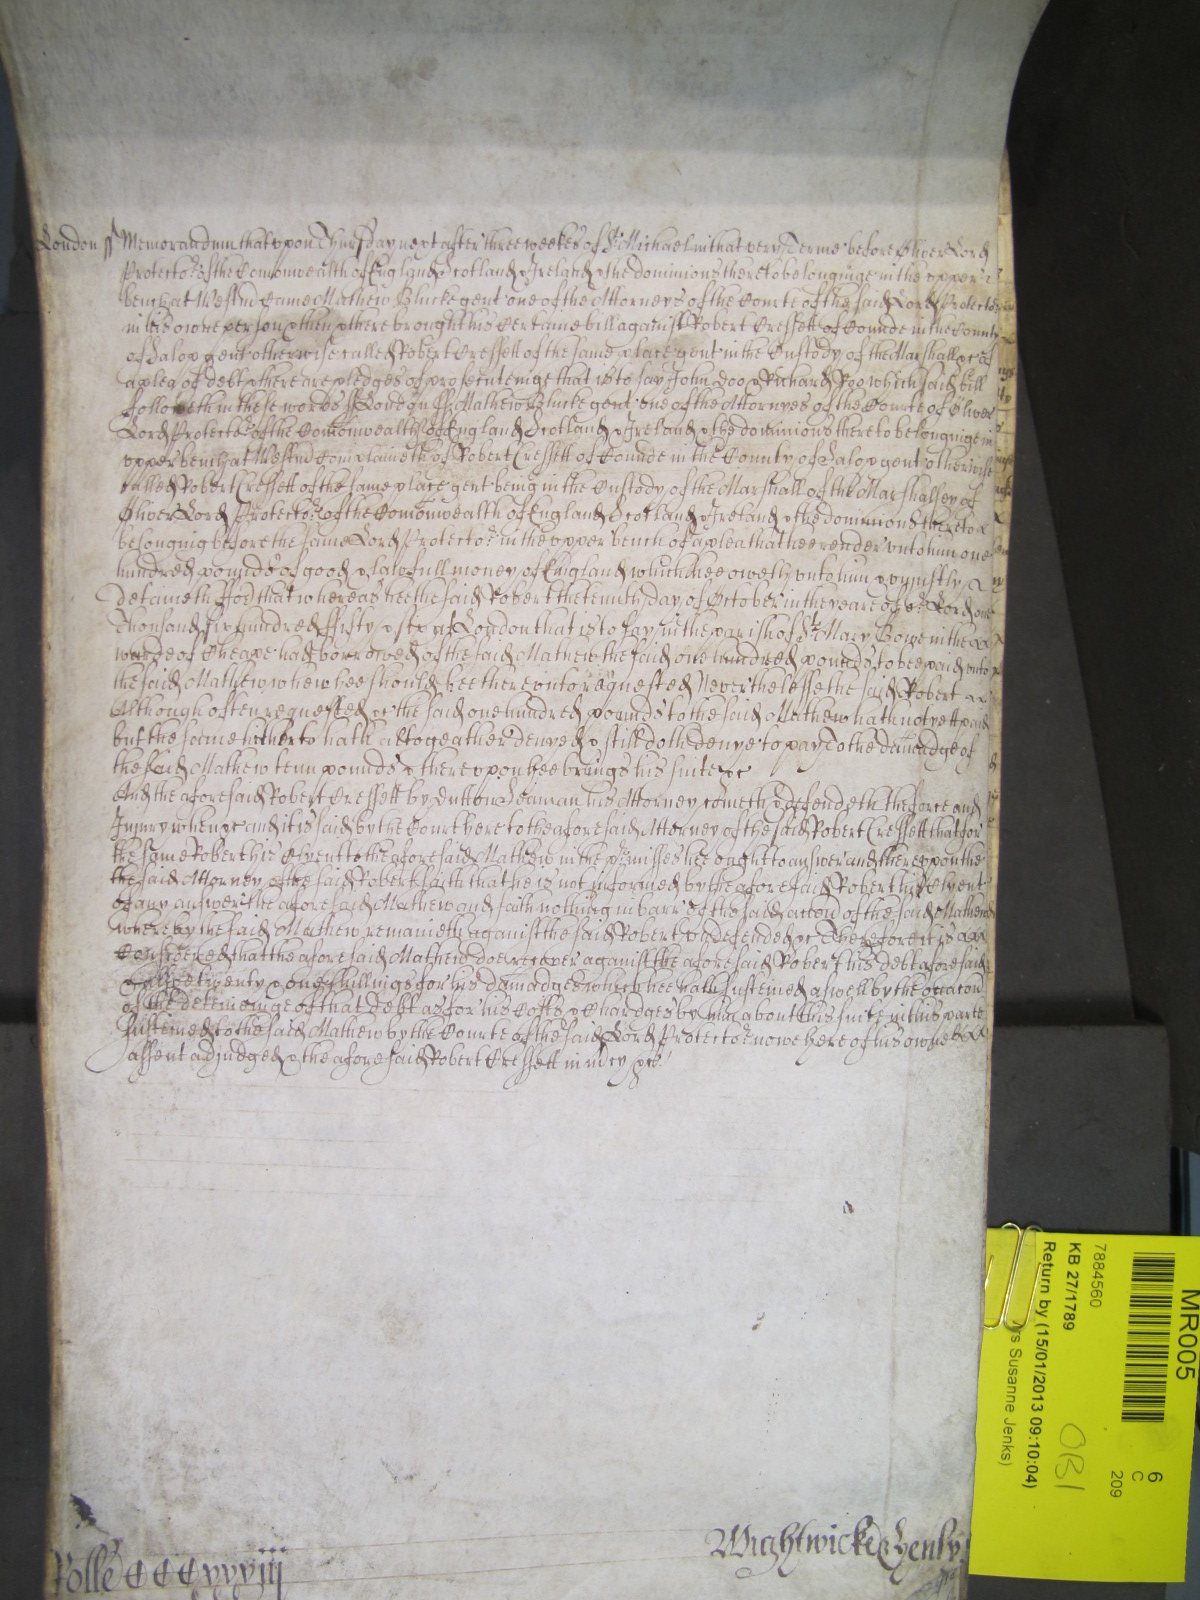 London ss Memorandum that upon Thursday next after three weekes of St Michael in that very Terme before Oliver Lord
Protector of the Comonwealth of England Scotland & Ireland & the dominions thereto belonginge in the upper
bench at Westm Came Mathew Blucke gent one of the Attorneys of the Courte of the said Lord Protector
in his owne person & then & there brought his Certaine bill against Robert Cressett of Counde in the County
of Salop gent otherwise called Robert Cressett of the same place gent in the Custody of the Marshall &c of
a plea of debt & there are pledges of prosecuteinge that is to say John Doo & Richard Roo which said bill
followeth in these words ss London ss Mathew Blucke gent one of the Attorneyes of the Courte of Oliver
Lord Protector of the Comonwealth of England Scotland & Ireland & the dominions thereto belonginge in
upper bench at Westm Complaineth of Robert Cressett of Counde in the County of Salop gent otherwise
called Robert Cressett of the same place gent being in the Custody of the Marshall of the Marshalsey of
Oliver Lord Protector of the Comonwealth of England Scotland & Ireland & the dominions thereto
belonging before the same Lord Protector in the upper bench of a plea that hee render unto him one
hundred pounds of good & lawfull money of England which hee oweth unto him & uniustly
detaineth ffor that whereas hee the said Robert the tenth day of October in the yeare of or Lord one
Thousand six hundred ffifty & six att London that is to say in the parish of St Mary Bowe in the
warde of Cheape had borrowed of the said Mathew the said one hundred pounds to bee paid unto
the said Mathew when hee should bee thereunto requested Neverthelesse the said Robert
Although often requested &c the said one hundred pounds to the said Mathew hath not yett paid
but the same hitherto hath altogeather denyed & still doth denye to pay To the damadge of
the said Mathew tenn pounds & thereupon hee brings his suite &c
And the aforesaid Robert Cressett by Dutton Seaman his Attorney cometh & defendeth the force and
Iniury when &c and it is said by the Court here to the aforesaid Attorney of the said Robert Cressett that for
the same Robert his Clyent to the aforesaid Mathew in the pmisses hee ought to answer and thereupon the
the said Attorney of the said Robert saith that he is not informed by the aforesaid Robert his Clyent
of any answer the aforesaid Mathew and saith nothing in barr of the said accon of the said Mathew
whereby the said Mathew remaineth against the said Robert undefended &c Therefore it is
Considered that the aforesaid Mathew doe recover against the aforesaid Robert his debt aforesaid
twenty & one shillings for his damadges which hee hath susteined aswell by the occacon
of the deteineinge of that debt as for his Costs & Chardges by him about his suite in this parte
susteined to the said Mathew by the Courte of the said Lord Protector nowe here of his owne
assent adjudged & the aforesaid Robert Cressett in mcy &c
Rolle CCCxxxiij
Wightwicke & Henly
MR005
6
C
209
7884560
KB 27/1789
OB1
Return by (15/01/2013 09:10:04)
Susanne Jenks)